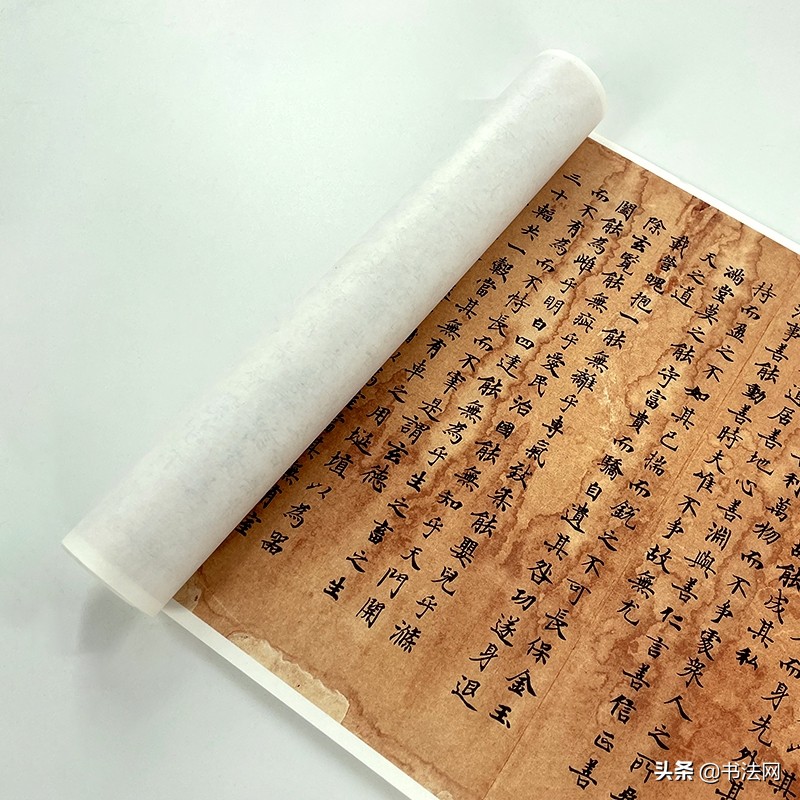 而身先外其
故能成其私
利萬物而不爭處衆人之所
道居善地心善淵與善仁言善信正善
事善能動善時夫唯不爭故無尤
持而盈之不如其已揣而銳之不可長保金玉
滿堂莫之能守富貴而驕自遺其咎功遂身退
天之道
載營魄抱一能無離乎專氣致柔能嬰兒乎滌
除玄覽能無疵乎愛民治國能無知乎天門開
闔能為雌乎明白四達能無為乎生之畜之生
而不有為而不恃長而不宰是謂玄德
三十輻共一轂當其無有車之用埏埴以為器
头条 @书法网